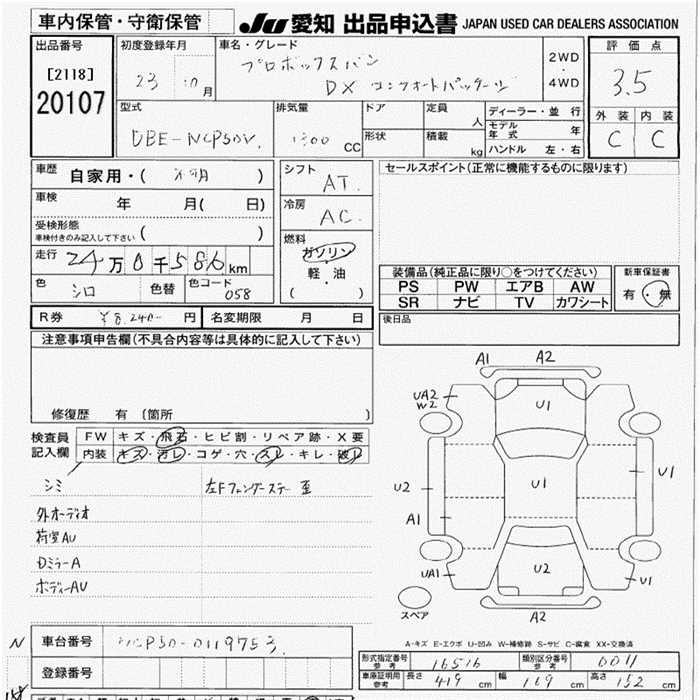 車内保管・守衛保管
JU 愛知 出品申込書 JAPAN USED CAR DEALERS ASSOCIATION
出品番号
[2118]
20107
初度登録年月
23 10月
車名・グレード
プロボックスバン
DX コンフォートパッケージ
2WD
・
4WD
評価点
3.5
外装 内装
C C
型式
DBE-NCP50V
排気量
1300 CC
ドア
形状
定員 人
積載 kg
ディーラー・並行
モデル年式 年
ハンドル 左・右
車歴
自家用・( 不明 )
車検 年 月( 日)
受検形態
車検付きのみ記入して下さい ( )
走行 24万0千586km
色 シロ 色替 色コード 058
シフト
AT
冷房
AC
燃料
ガソリン
軽・油
( )
セールスポイント(正常に機能するものに限ります)
装備品(純正品に限り○をつけてください)
PS PW エアB AW
SR ナビ TV カワシート
新車保証書
有・無
後日品
R券 ¥8,240- 円 名変期限 月 日
注意事項申告欄(不具合内容等は具体的に記入して下さい)
修復歴 有〔箇所 〕
検査員
記入欄
FW キズ・飛石・ヒビ割・リペア跡・X要
内装 キズ・汚レ・コゲ・穴・スレ・キレ・破レ
シミ
左Fフェンダーステー歪
外オーディオ
荷室AU
DミラーA
ボディーAU
A1 A2
UA2
W2
U1
U2 U1 U1
A1
U2
UA1 U1
A2
スペア
A-キズ E-エクボ U-凹み W-補修跡 S-サビ C-腐食 XX-交換済
N
車台番号 NCP50-0119753
登録番号
形式指定番号
参考
16516
類別区分番号
参考
0011
車庫証明用
参考
長さ 419 cm 幅 169 cm 高さ 152 cm